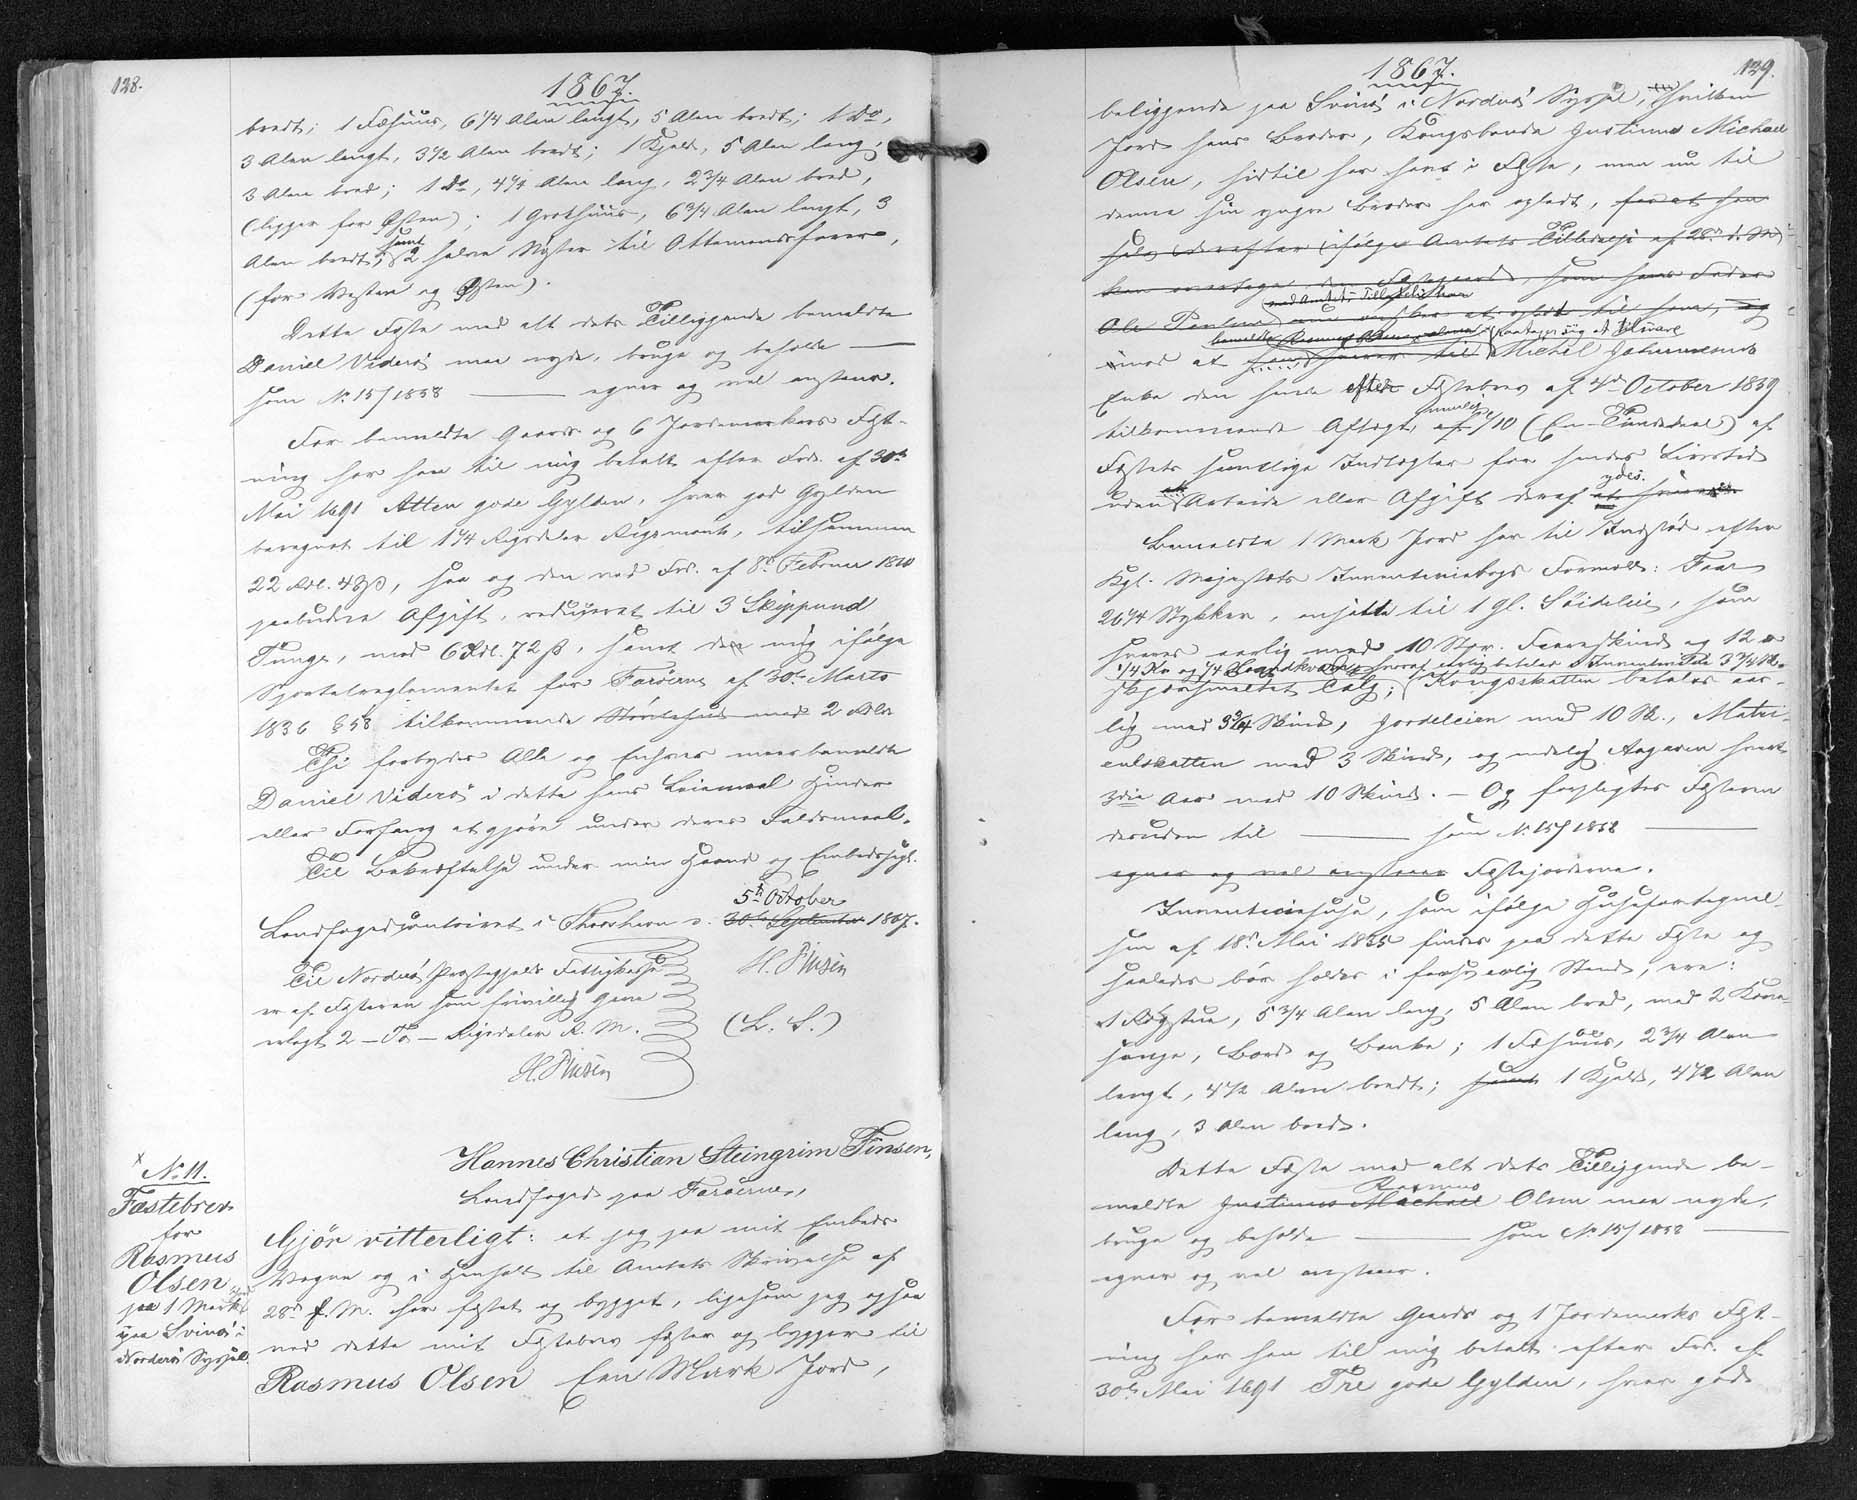 128.
1867.
bredt; 1 Fæhuus, 6 1/4 Alen langt, 5 Alen bredt; 1 Do,
3 Alen langt, 3 1/2 Alen bredt; 1 Kjeld, 5 Alen lang,
3 Alen bred; 1 Do, 4 1/4 Alen lang, 2 3/4 Alen bred,
(ligger for Østen); 1 Grothuus, 6 3/4 Alen langt, 3
Alen bredt, samt 2 halve Nøster til Ottemandsfarer,
(for Vesten og Østen).
Dette Fæste med alt dets Tilliggende bemeldte
Daniel Viderøi maa nyde, bruge og beholde —
som No 15/1858 — egner og vel anstaaer.
For bemeldte Gaards og 6 Jordemarkers Fæst-
ning har han til mig betalt efter Frd. af 30te
Mai 1691 Atten gode Gylden, hver god Gylden
beregnet til 1 1/4 Rigsdaler Rigsmønt, tilsammen
22 Rdl. 48 β, saa og den ved Frd. af 8de Februar 1810
paabudne Afgift, reduceret til 3 Skippund
Tunge, med 6 Rdl. 72 β, samt den mig ifølge
Sportelreglementet for Færøerne af 30te Marts
1836 § 58 tilkommende Størlehud med 2 Rdlr
Thi forbydes Alle og Enhver meerbemeldte
Daniel Viderøi i dette hans Leiemaal Hinder
eller Forfang at gjøre under deres Faldsmaal.
Til Bekræftelse under min Haand og Embedssegl.
5te October
Landfogedcontoiret i Thorshavn d. 30te September 1867.
Til Nordøe Præstegjelds Fattigkasse
er af Fæsteren som frivillig Gave
erlagt 2 — To — Rigsdaler R. M.
H. Finsen
H. Finsen
(L. S.)
x
No 11.
Fæstebrev
for
Rasmus
Olsen
paa 1 Mark Jord
paa Svinøi i
Norderø Syssel.
Hannes Christian Steingrim Finsen,
Landfoged paa Færøerne,
Gjør vitterligt: at jeg paa mit Embeds
Vegne og i Henhold til Amtets Skrivelse af
28de f. M. har fæstet og bygget, ligesom jeg ogsaa
ved dette mit Fæstebrev fæster og bygger til
Rasmus Olsen Een Mark Jord,
129.
1867.
beliggende paa Svinøi i Nordøe Syssel, hvilken
Jord hans Broder, Kongsbonde Justinus Michael
Olsen, hidtil har havt i Fæste, men nu til
denne sin yngre Broder har opladt, for at han
selv derefter (ifølge Amtets Tilladelse af 28de d. M)
kan overtage den Fæstegaard, som hans Fader
(med Amtets Tilladelse han
Ole Poulsen nu ønsker at oplade til ham, og
bemeldte Rasmus Olsen paatager sig at tilsvare
imod at han svarer til Michel Johannesens
Enke den hende efter Fæstebrev af 4de October 1839
tilkommende Aftægt, nemlig af 1/10 (En Tiendedeel) af
Fæstets samtlige Indtægter for hendes Livstid
uden at Arbeide eller Afgift deraf ydes.
Bemeldte 1 Mark Jord har til Indstød efter
Kgl. Majestæts Inventariebogs Formeld: Faar
26 1/4 Stykker, ansatte til 1 gl. Søideleie, som
svares aarlig med 10 Stkr. Faareskind og 12 ℔
1/4 Ko og 1/4 Qvægkvie, hvoraf aarlig betales i Inventarieleie 3 3/4 Sk.
skjærsmeltet Talg; Kongsskatten betales aar-
lig med 3 3/4 Skind, Jordeleien med 10 Sk., Matri-
culskatten med 3 Skind, og endelig Angaven hvert
3die Aar med 10 Skind. — Og forpligtes Fæsteren
desuden til — som No 15/1858 —
egner og vel anstaaer Fæstejorderne.
Inventariehuse, som ifølge Huusfortegnel-
sen af 18de Mai 1835 findes paa dette Fæste og
saaledes bør holdes i forsvarlig Stand, ere:
1 Røgstue, 5 3/4 Alen lang, 5 Alen bred, med 2 Kove
senge, Bord og Bænke; 1 Fæhuus, 2 3/4 Alen
langt, 4 1/2 Alen bredt; samt 1 Kjeld, 4 1/2 Alen
lang, 3 Alen bred.
Dette Fæste med alt dets Tilliggende be-
Rasmus
meldte Justinus Michael Olsen maa nyde,
bruge og beholde — som No 15/1858 —
egner og vel anstaaer.
For bemeldte Gaards og 1 Jordemarks Fæst-
ning har han til mig betalt efter Frd. af
30te Mai 1691 Tre gode Gylden, hver god